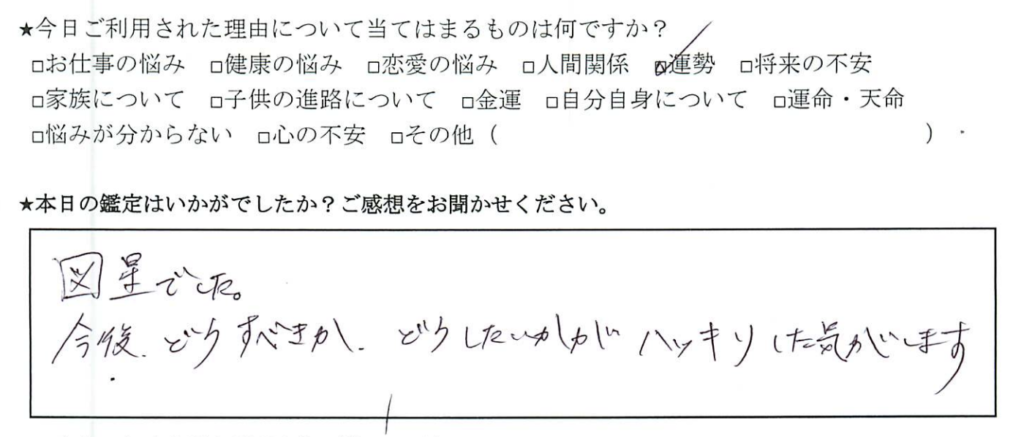 ★今日ご利用された理由について当てはまるものは何ですか？
□お仕事の悩み　□健康の悩み　□恋愛の悩み　□人間関係　☑運勢　□将来の不安
□家族について　□子供の進路について　□金運　□自分自身について　□運命・天命
□悩みが分からない　□心の不安　□その他（　　　　　　　　　　　　　　　　）
★本日の鑑定はいかがでしたか？ご感想をお聞かせください。
図星でした。
今後、どうすべきか、どうしたいかがハッキリした気がします